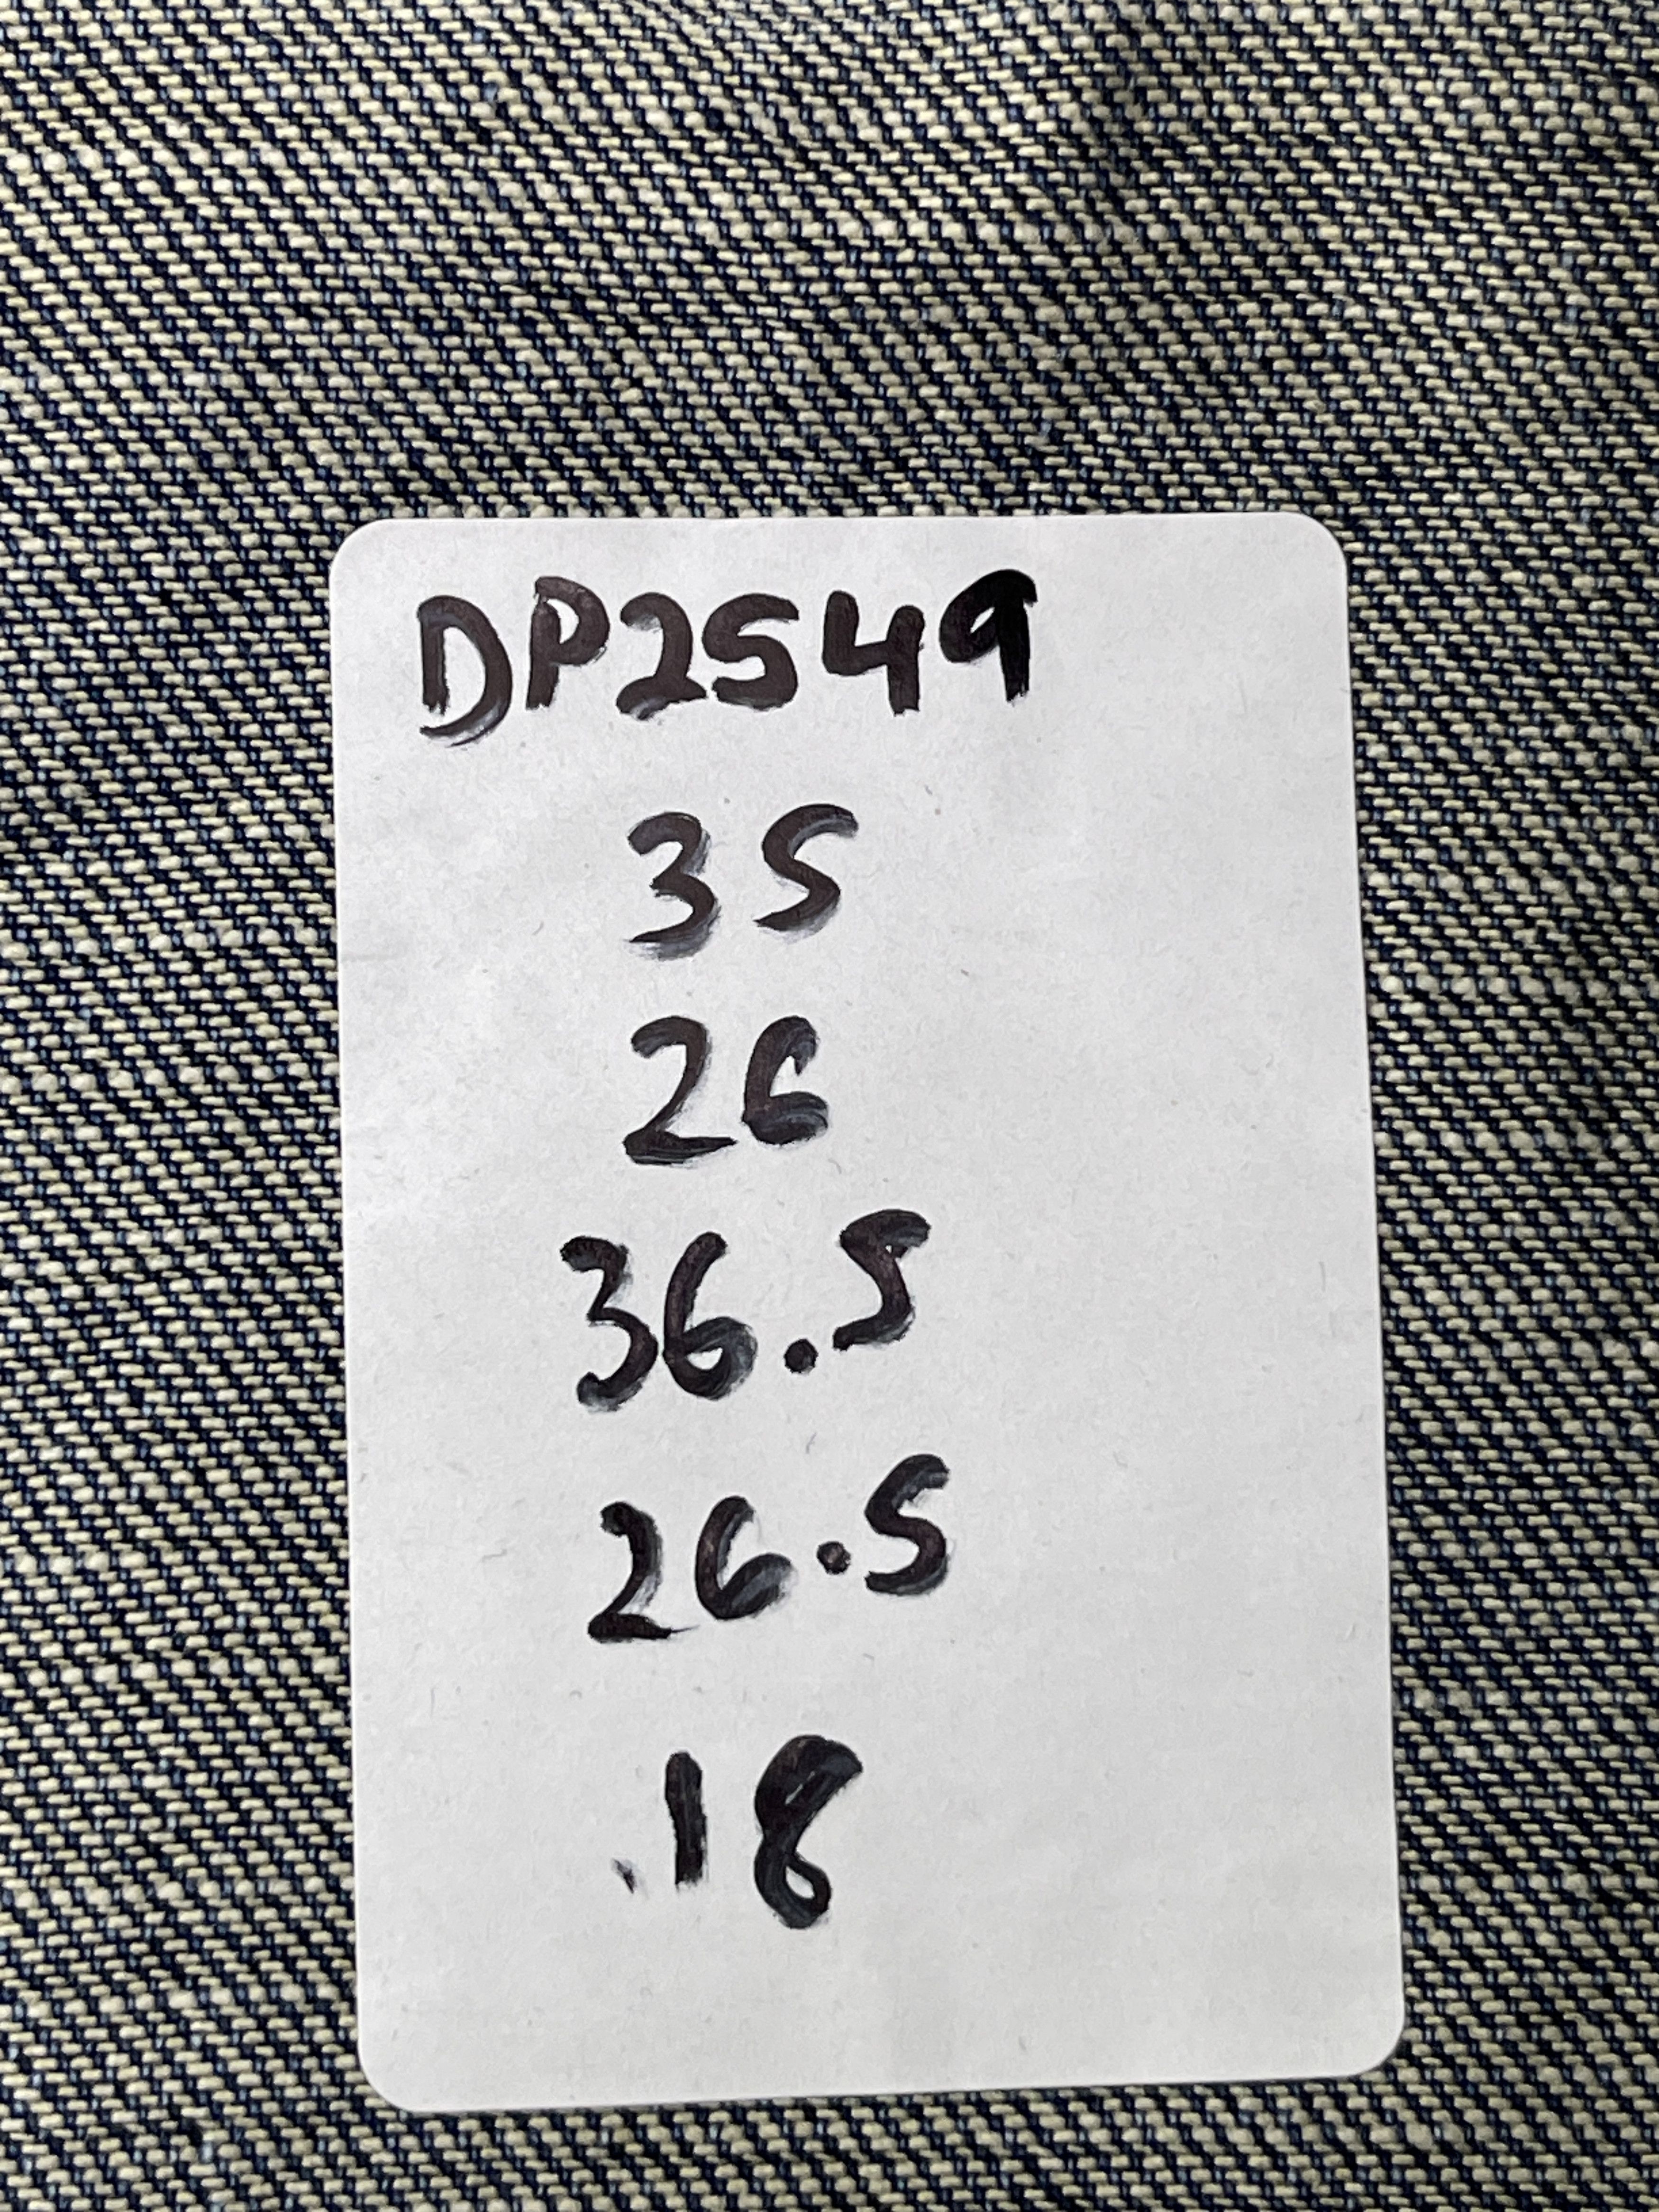 DP2549
35
26
36.5
26.5
.18